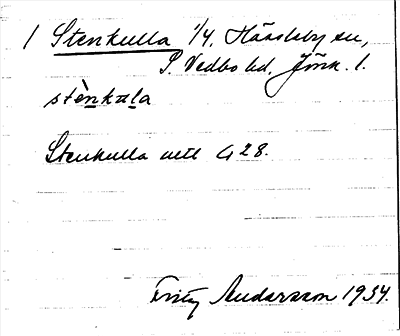 1 Stenkulla 1/4, Häössleby sn,
S. Vedbo hd, Jönk. l.
stènkula
Stenkulla utl G 28.
Fritz Andersson 1934.